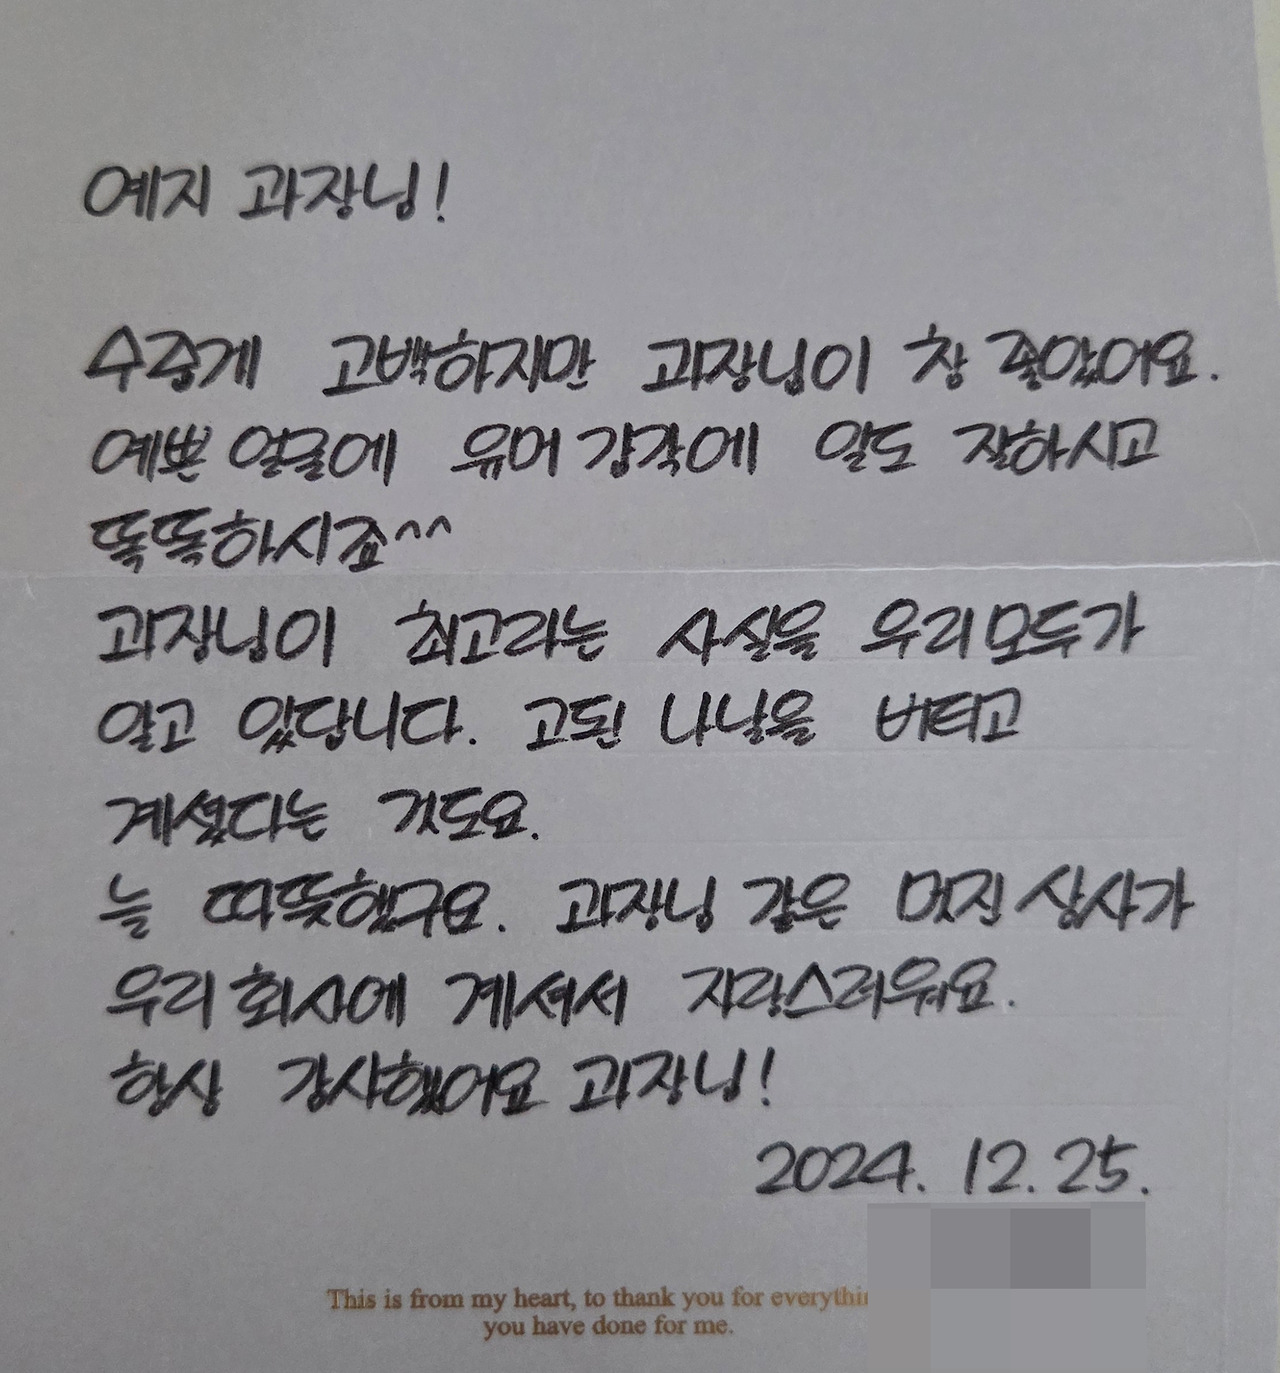 예지 과장님!
수줍게 고백하지만 과장님이 참 좋았어요.
예쁜 얼굴에 유머감각에 일도 잘하시고
똑똑하시죠^^
과장님이 최고라는 사실을 우리모두가
알고 있답니다. 고된 나날을 버티고
계셨다는 것도요.
늘 따뜻했구요. 과장님 같은 멋진 상사가
우리회사에 계셔서 자랑스러워요.
항상 감사했어요 과장님!
2024. 12. 25.
This is from my heart, to thank you for everythin
you have done for me.